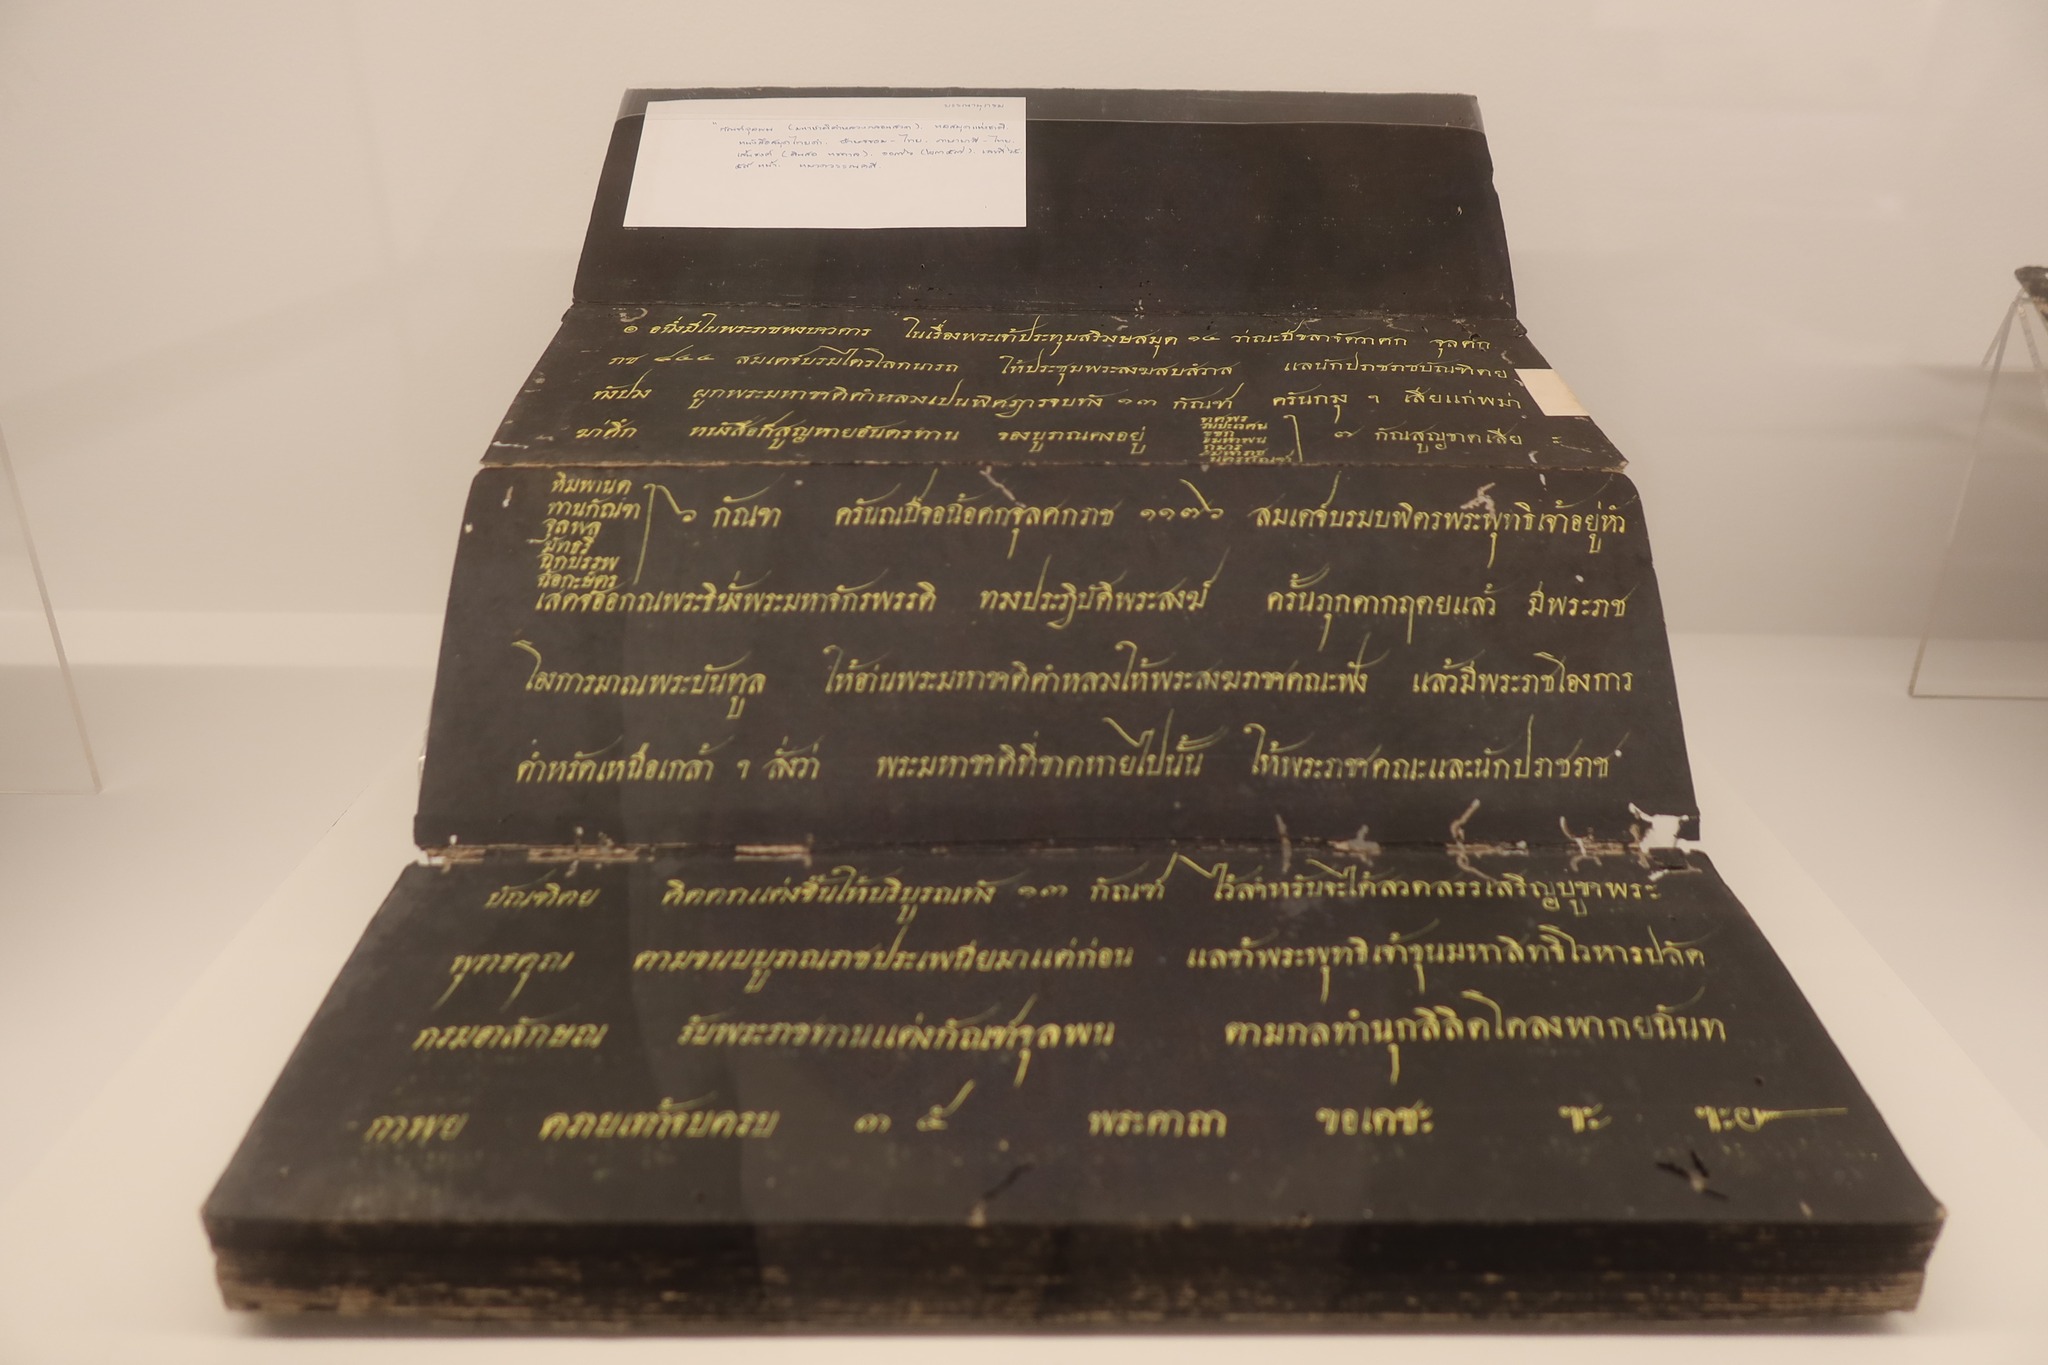 บรรณานุกรม
"กัณฑ์จุลพน (มหาชาติคำหลวง
หนังสือสมุดไทยดำ. อักษรขอม-ไทย. ภาษาบาลี-ไทย.
เส้นรงค์
๕๘ หน้า. หมวดวรรณคดี.
๏ อนึ่งมีในพระราชพงษาวดาร ในเรื่องพระเจ้าประทุมสริวงษสมุด ๑๔ ว่าณะปีขลาจัตวาศก จุลศัก
ราช ๘๔๔ สมเดจ์บรมไตรโลกนารถ ให้ประชุมพระสงฆ แลนักปราชราชบัณฑิตย
ทังปวง ผูกพระมหาชาติคำหลวงเปน จบทัง ๑๓ กัณฑ ครันกรุง ฯ เสียแก่พม่า
ฆ่าศึก หนังสือก็สูญหายอันตรทาน ยังบูรณคงอยู่
ทศพร
วันประเวศน
ชูชก
มหาพน
กุมาร
มหาราช
นครกัณฑ
๗ กัณสูญขาดเสีย
หิมพานต
ทานกัณฑ
จุลพล
มัทรี
สักบรรพ
ฉ้อกะษัตร
๖ กัณฑ ครันณปีจอฉ้อศกจุลศกราช ๑๑๗๖ สมเดจ์บรมบพิตรพระพุทธิเจ้าอยู่หัว
เสดจ์ออกณพระธินั่งพระมหาจักรพรรดิ ทรงประฏิบัติพระสงฆ์ ครั้นภุกดากฤตยแล้ว มีพระราช
โองการมาณพระบันทูล ให้อ่านพระมหาชาติคำหลวงให้พระสงฆราชาคณะฟัง แล้วมีพระราชโองการ
ดำหรัดเหนือเกล้า ฯ สั่งว่า พระมหาชาติที่ขาดหายไปนั้น ให้พระราชาคณะและนักปราชราช
บัณฑิตย คิดตกแต่งขึ้นให้บริบูรณทัง ๑๓ กัณฑ์ ไว้สำหรับจะได้สวดสรรเสริญบูชาพระ
พุทธคุณ ตามจนบบูราณราชประเพณียมาแต่ก่อน แลข้าพระพุทธิเจ้าขุนมหาสิทธิโวหารปลัด
กรมอาลักษณ รับพระราชทานแต่งกัณฑ์จุลพน ตามกลทำนุกลิลิตโคลงพากยฉันท
กาพย ครายเทาจ์บครบ ๓๕ พระคาถา ขอเดชะ ชะ ชะ